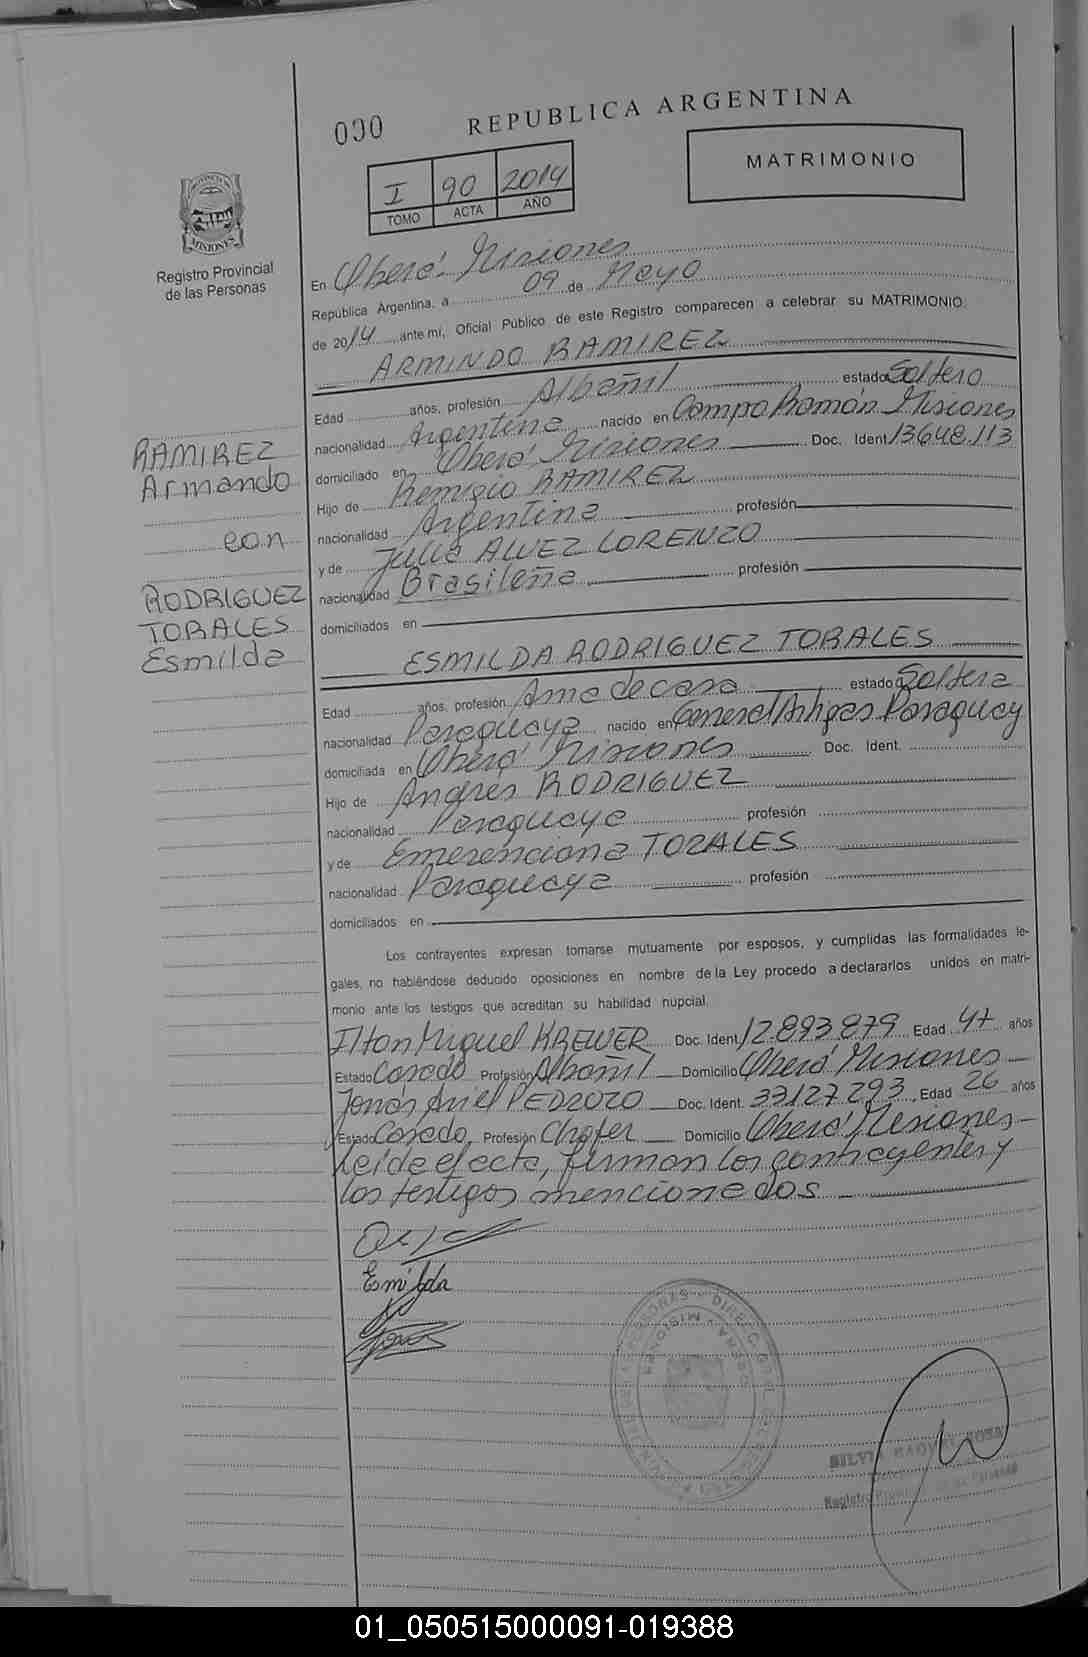 000
REPUBLICA ARGENTINA
MATRIMONIO
I 90 2014
TOMO ACTA AÑO
PROVINCIA
MISIONES
Registro Provincial
de las Personas
En Oberá Misiones
República Argentina, a 09 de Mayo
de 2014 ante mí, Oficial Público de este Registro comparecen a celebrar su MATRIMONIO:
ARMINDO RAMIREZ
Edad años, profesión Albañil estado Soltero
nacionalidad Argentina nacido en Campo Ramón Misiones
domiciliado en Oberá Misiones Doc. Ident 13.648.113
Hijo de Remigio RAMIREZ
nacionalidad Argentina profesión
y de Julia ALVEZ LORENZO
nacionalidad Brasileña profesión
domiciliados en
RAMIREZ
Armando
con
RODRIGUEZ
TORALES
Esmilda
ESMILDA RODRIGUEZ TORALES
Edad años, profesión Ama de casa estado Soltera
nacionalidad Paraguaya nacido en General Artigas Paraguay
domiciliada en Oberá Misiones Doc. Ident.
Hijo de Andres RODRIGUEZ
nacionalidad Paraguaya profesión
y de Emerenciana TORALES
nacionalidad Paraguaya profesión
domiciliados en
Los contrayentes expresan tomarse mutuamente por esposos, y cumplidas las formalidades le-
gales, no habiéndose deducido oposiciones en nombre de la Ley procedo a declararlos unidos en matri-
monio ante los testigos que acreditan su habilidad nupcial.
Ilton Miguel KREWER Doc. Ident 12.893.879 Edad 47 años
Estado Casado Profesión Albañil Domicilio Oberá Misiones
Jonas Ariel PEDROZO Doc. Ident. 33.127.293, Edad 26 años
Estado Casado, Profesión Chofer Domicilio Oberá Misiones
Leida el acta, firman los contrayentes y
los testigos mencionados
Emilda
SILVIA RAQUEL SOSA
01_050515000091-019388